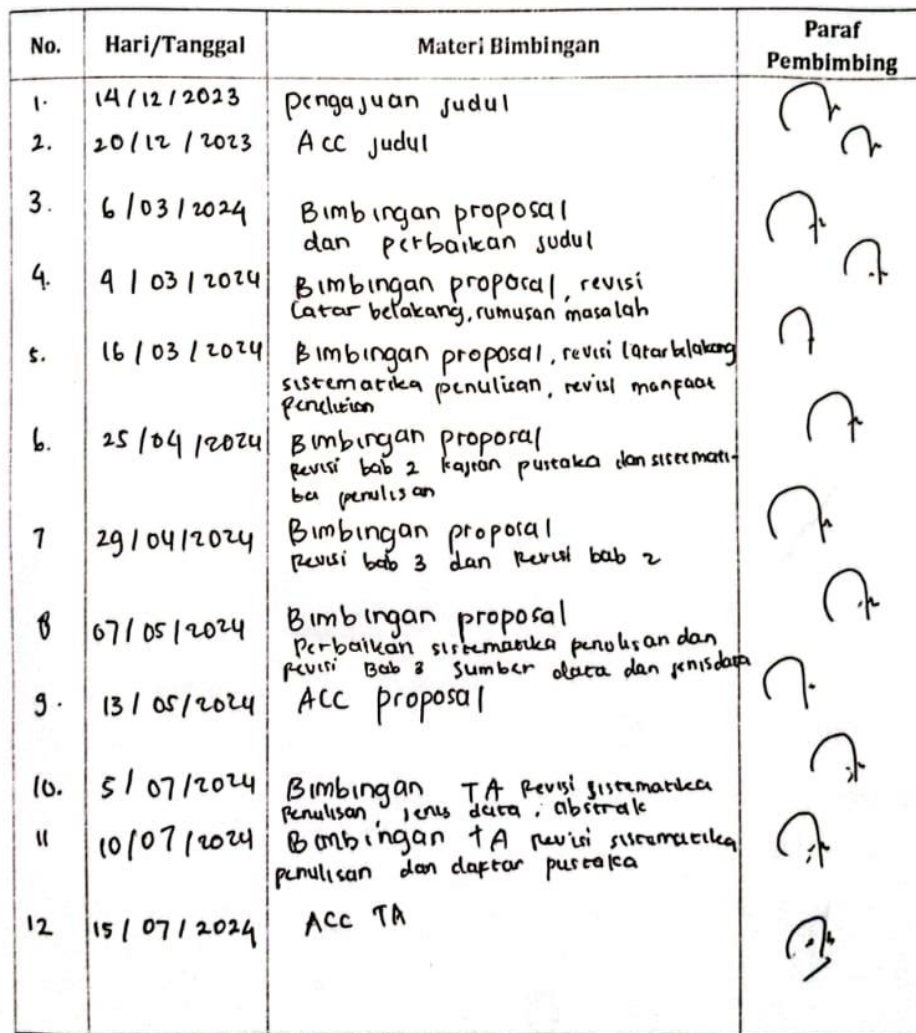 No. Hari/Tanggal Materi Bimbingan Paraf Pembimbing
1. 14/12/2023 Pengajuan judul
2. 20/12/2023 Acc judul
3. 6/03/2024 Bimbingan proposal
dan perbaikan judul
4. 9/03/2024 Bimbingan proposal, revisi
Latar belakang, rumusan masalah
5. 16/03/2024 Bimbingan proposal, revisi latar belakang
sistematika penulisan, revisi manfaat
penelitian
6. 25/04/2024 Bimbingan proposal
Revisi bab 2 kajian pustaka dan sistemati-
ka penulisan
7 29/04/2024 Bimbingan proposal
Revisi bab 3 dan Revisi bab 2
8 07/05/2024 Bimbingan proposal
Perbaikan sistematika penulisan dan
Revisi Bab 3 Sumber data dan jenis data
9. 13/05/2024 ACC proposal
10. 5/07/2024 Bimbingan TA Revisi sistematika
Penulisan, jenis data, abstrak
11 10/07/2024 Bimbingan TA revisi sistematika
penulisan dan daftar pustaka
12 15/07/2024 ACC TA